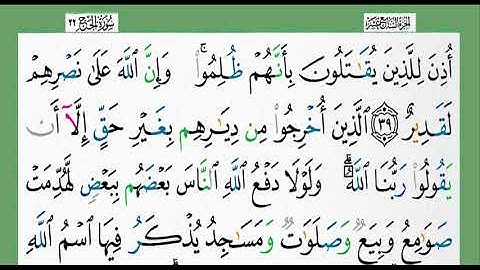 الجزء السابع عشر سورة الحج ٢٢
أُذِنَ لِلَّذِينَ يُقَٰتَلُونَ بِأَنَّهُمْ ظُلِمُوا۟ ۚ وَإِنَّ ٱللَّهَ عَلَىٰ نَصْرِهِمْ
لَقَدِيرٌ ٣٩ ٱلَّذِينَ أُخْرِجُوا۟ مِن دِيَٰرِهِم بِغَيْرِ حَقٍّ إِلَّآ أَن
يَقُولُوا۟ رَبُّنَا ٱللَّهُ ۗ وَلَوْلَا دَفْعُ ٱللَّهِ ٱلنَّاسَ بَعْضَهُم بِبَعْضٍ لَّهُدِّمَتْ
صَوَٰمِعُ وَبِيَعٌ وَصَلَوَٰتٌ وَمَسَٰجِدُ يُذْكَرُ فِيهَا ٱسْمُ ٱللَّهِ